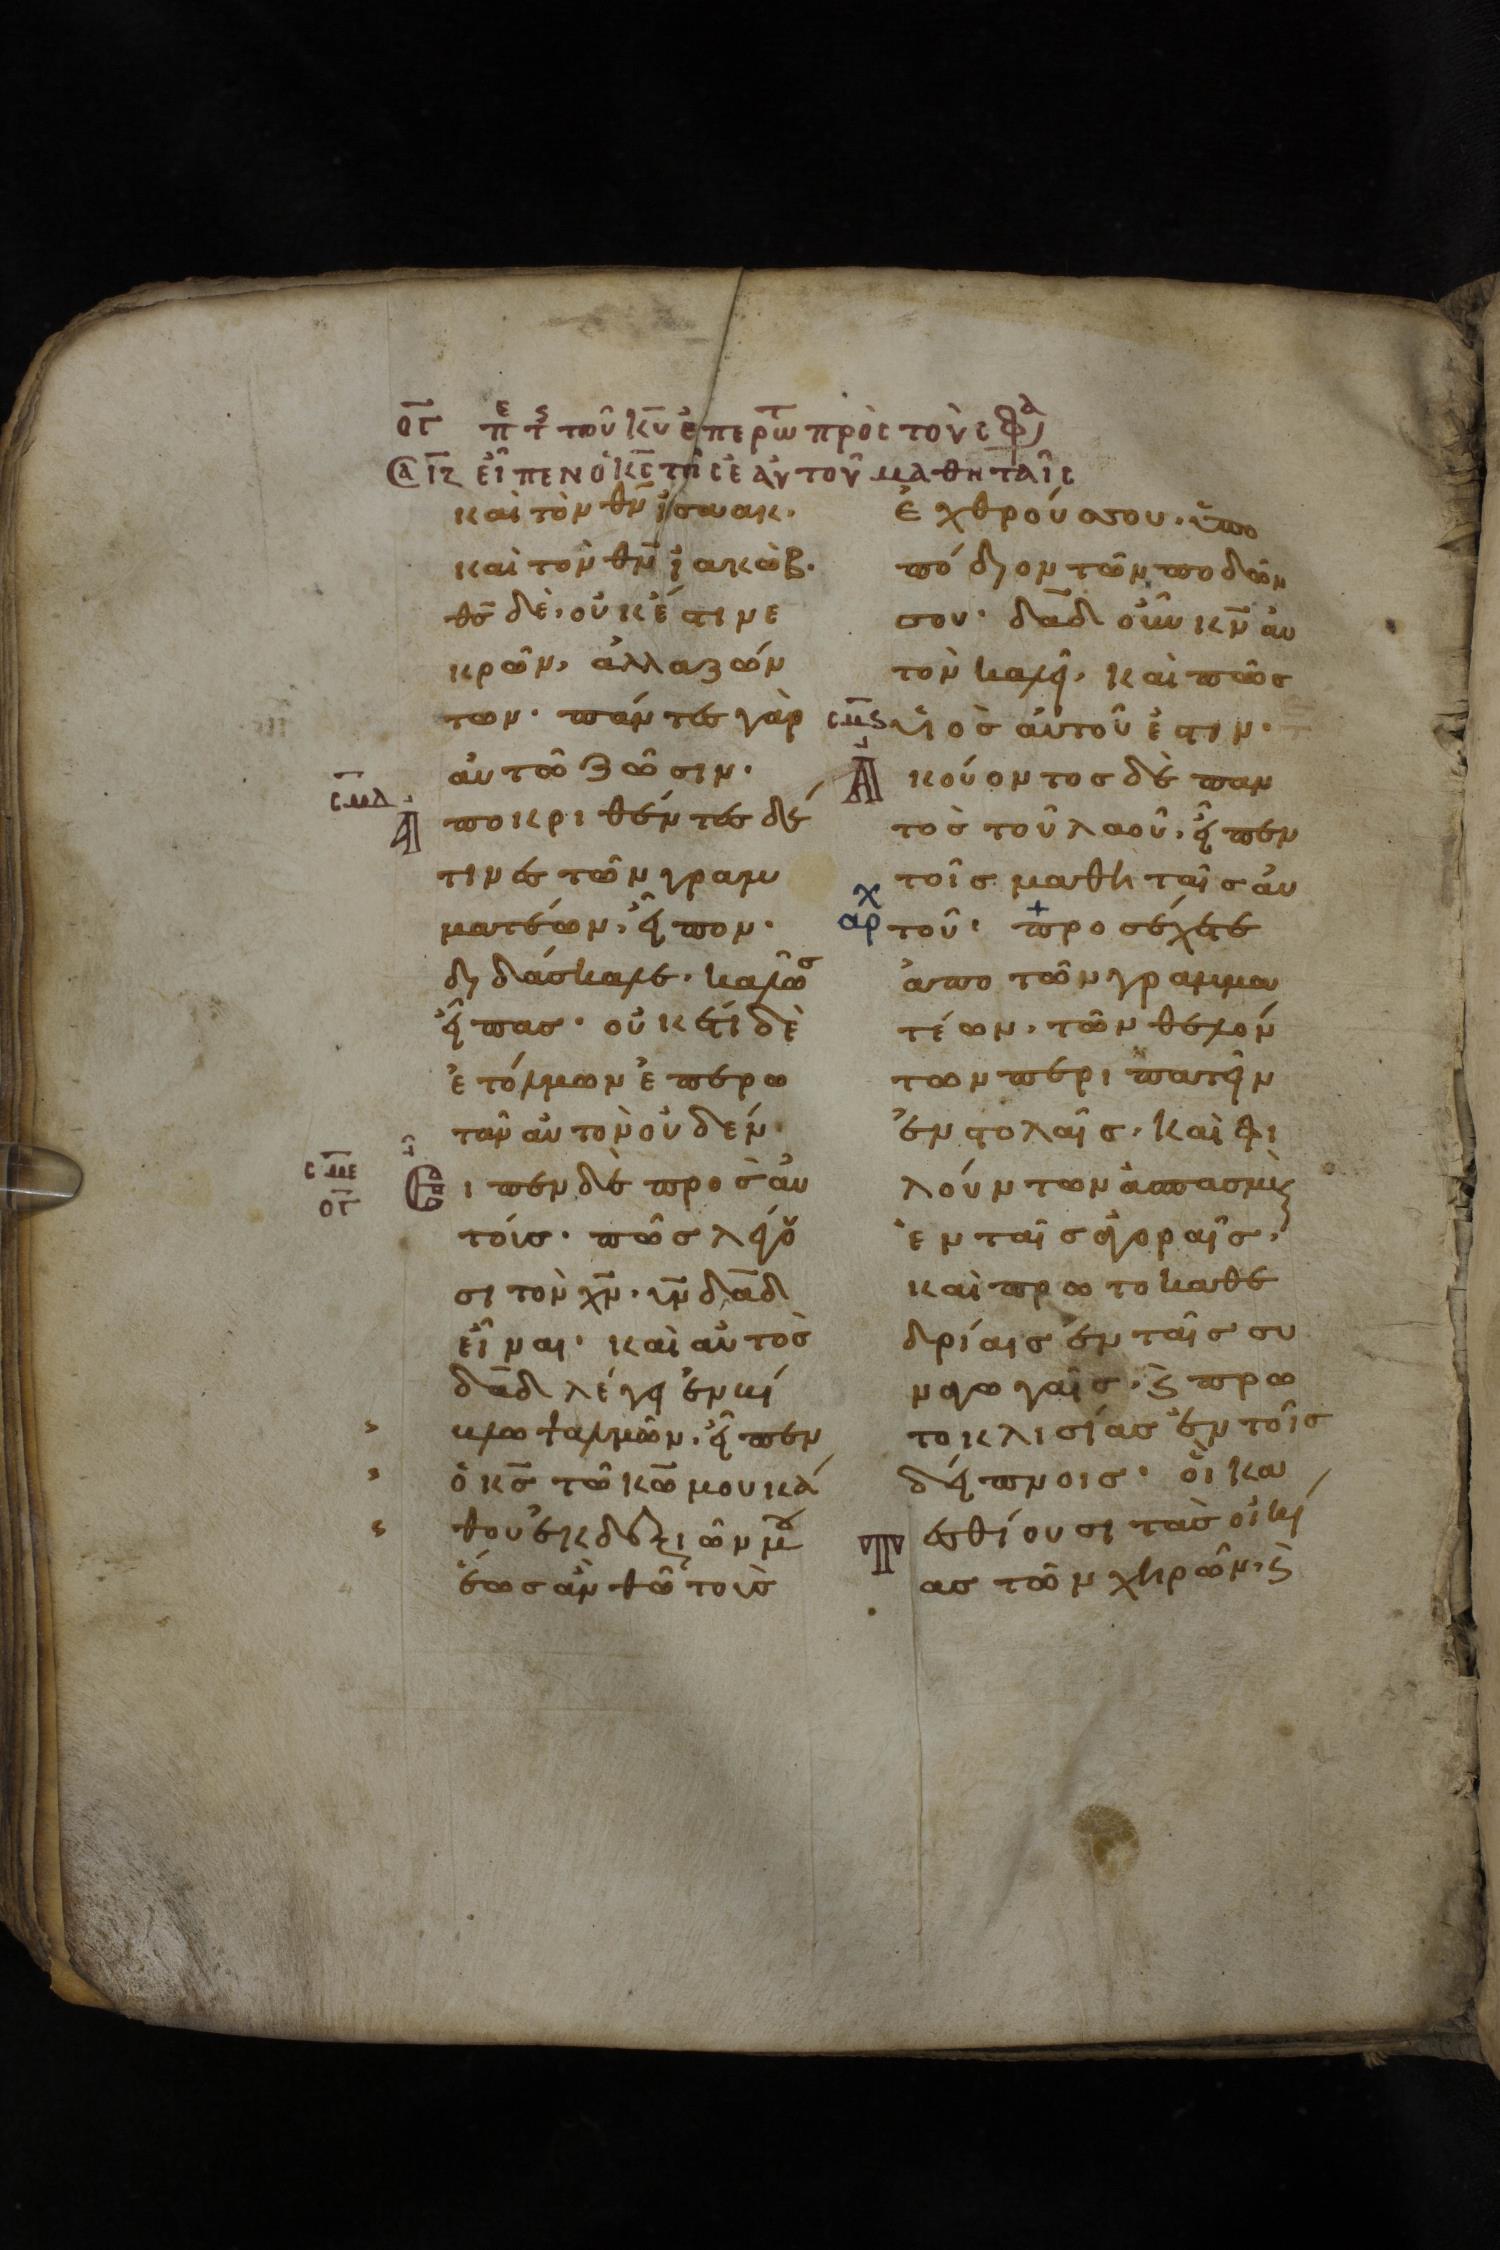 οτ̅ πε τς τοῦ κ̅υ̅ ἐπερωτ̅ πρὸς τοὺς φαρ
ϹΑ ιζ εἶπεν ὁ κ̅ς̅ τοῖς ἑαυτοῦ μαθηταῖς
καὶ τὸν θ̅ν̅ ἰσαακ·
καὶ τὸν θ̅ν̅ ἰακὼβ·
θ̅ς̅ δὲ, οὐκ έστι νε
κρῶν, ἀλλα ζών
των· πάντες γὰρ
αυτῶ ζῶσιν·
ϲμδ
Αποκριθέντες δέ
τινες τῶν γραμ
ματέων, εἶπον·
διδάσκαλε, καλῶσ
εἶπας· οὐκέτι δὲ
ἐτόλμων ἐπερω
τᾶν αὐτὸν οὐδέν·
ϲμε
οτ̅
Ειπεν δὲ προσ αὐ
τόις· πῶς λέγου
σι τὸν χ̅ν̅· υ̅ν̅ δ̅α̅δ̅
εἶναι· καὶ αὐτὸσ
δ̅α̅δ̅ λέγει ἐν βί
βλω ψαλμῶν, εἶπεν
ὁ κ̅ς̅ τῶ κ̅ω̅ μου κά
θου ἐκ δεξιῶν μου
έως ἂν θῶ τοὺς
ἐχθρούς σου, ὑπο
πόδιον τῶν ποδῶν
σου· δ̅α̅δ̅ οὖν κ̅ν̅ αὐ
τὸν καλεῖ, καὶ πῶς
ϲμϛ υἱὸς αὐτοῦ ἐστιν·
Ακούοντος δὲ παν
τὸς τοῦ λαοῦ, εἶπεν
τοῖς μαθηταῖς αὐ
αρχ τοῦ· + προσέχετε
ἀπο τῶν γραμμα
τέων, τῶν θελόν
των περιπατεῖν
ἐν στολαῖς, καὶ φι
λούντων ἀσπασμοὺς
ἐν ταῖς ἀγοραῖς,
καὶ πρωτοκαθε
δρίαις ἐν ταῖς συ
ναγωγαῖς, ϗ πρω
τοκλισίας ἐν τοῖς
δείπνοις· οἱ κα
τεσθίουσι τὰς οἰκί
ας τῶν χηρῶν, ϗ